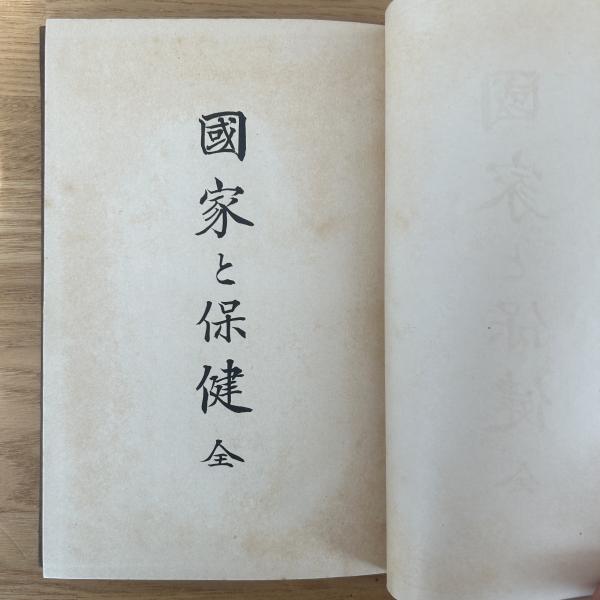 國家と保健 全